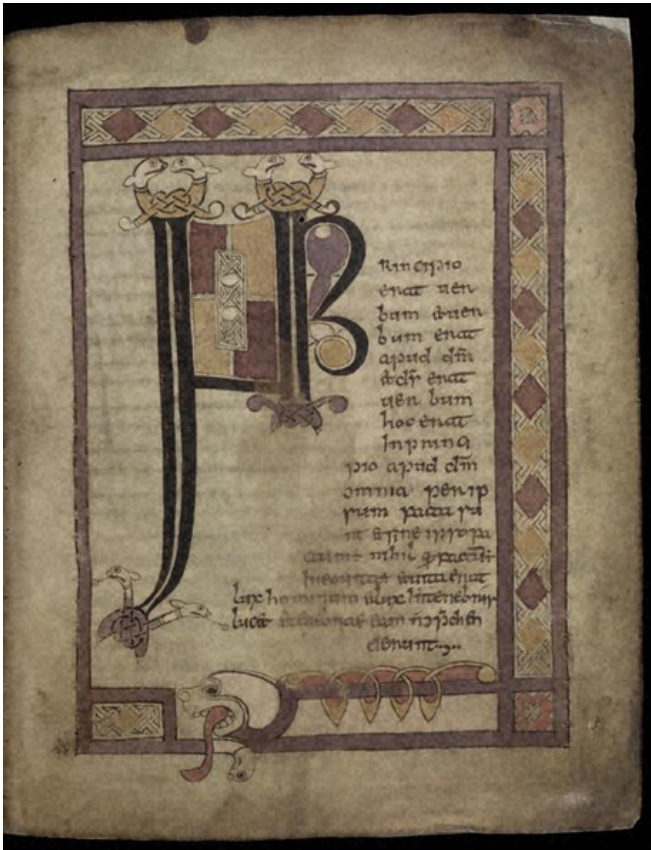 INP
Rincipio
erat uer
bum & uer
bum erat
apud dm̄
& ds̄ erat
uerbum
hoc erat
In princi
pio apud dm̄
omnia per ip
sum facta su
nt & sine ipso fa
ctum nihil
uita erat
lux hominum & lux In tenebris
lucet & tenebrae eam
derunt